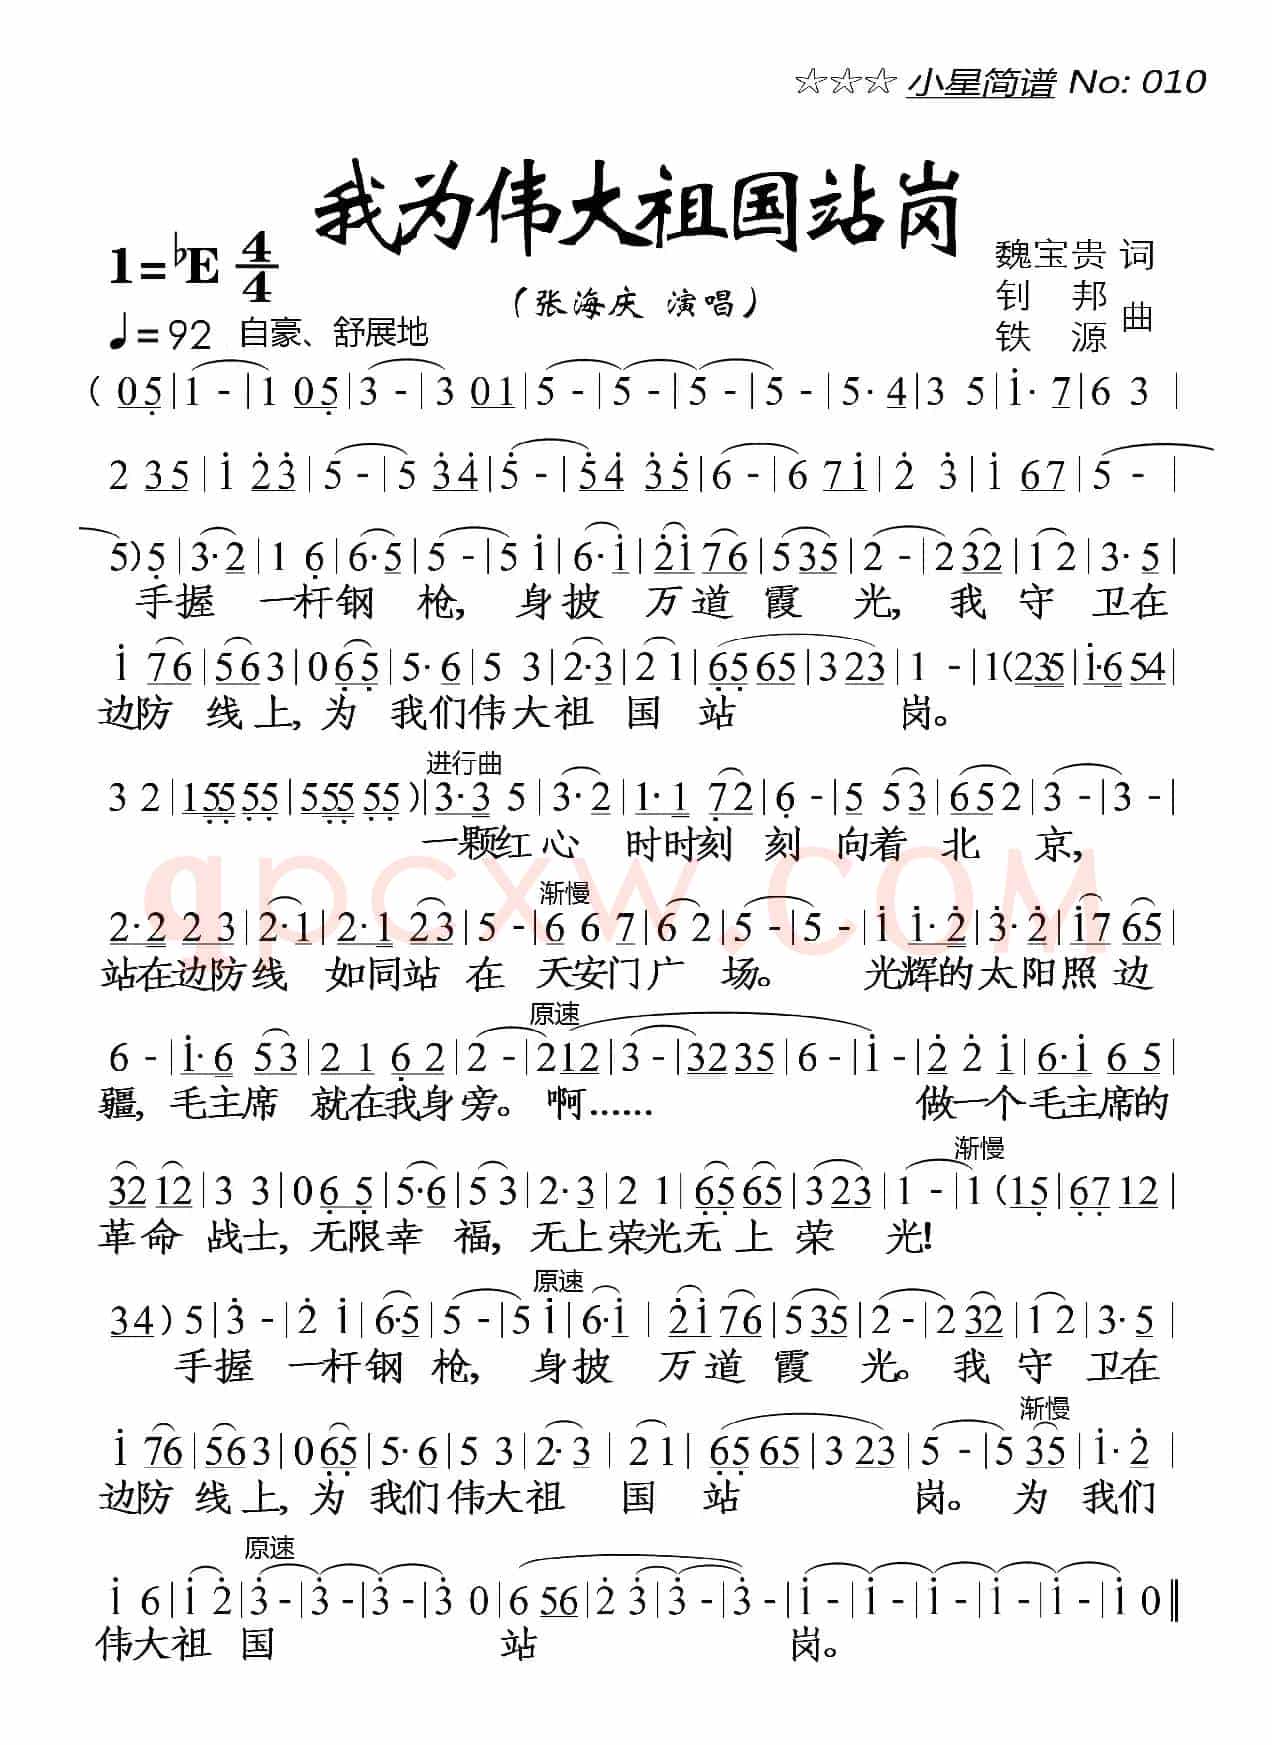 ☆☆☆ 小星简谱 No: 010
我为伟大祖国站岗
1=♭E 4/4
魏宝贵 词
(张海庆 演唱)
钊 邦
铁 源 曲
♩=92 自豪、舒展地
( 0 5 | 1 - | 1 0 5 | 3 - | 3 0 1 | 5 - | 5 - | 5 - | 5 - | 5· 4 | 3 5 | 1· 7 | 6 3 |
2 3 5 | 1 2 3 | 5 - | 5 3 4 | 5 - | 5 4 3 5 | 6 - | 6 7 1 | 2 3 | 1 6 7 | 5 - |
5 ) 5 | 3· 2 | 1 6 | 6· 5 | 5 - | 5 1 | 6· 1 | 2 1 7 6 | 5 3 5 | 2 - | 2 3 2 | 1 2 | 3· 5 |
手握 一杆钢 枪, 身披 万道霞 光, 我守 卫在
1 7 6 | 5 6 3 | 0 6 5 | 5· 6 | 5 3 | 2· 3 | 2 1 | 6 5 6 5 | 3 2 3 | 1 - | 1 ( 2 3 5 | 1· 6 5 4 |
边防 线上, 为 我们伟大祖 国 站 岗。
进行曲
3 2 | 1 5 5 5 5 | 5 5 5 5 5 ) | 3· 3 5 | 3· 2 | 1· 1 7 2 | 6 - | 5 5 3 | 6 5 2 | 3 - | 3 - |
一颗红心 时时刻 刻 向着 北 京,
渐慢
2· 2 2 3 | 2· 1 | 2· 1 2 3 | 5 - | 6 6 7 | 6 2 | 5 - | 5 - | 1 1· 2 | 3· 2 | 1 7 6 5 |
站在边防线 如同站 在 天安门广 场。 光辉的太阳照 边
原速
6 - | 1· 6 5 3 | 2 1 6 2 | 2 - | 2 1 2 | 3 - | 3 2 3 5 | 6 - | 1 - | 2 2 1 | 6· 1 6 5 |
疆, 毛主席 就在我身旁。 啊…… 做一个毛主席的
渐慢
3 2 1 2 | 3 3 | 0 6 5 | 5· 6 | 5 3 | 2· 3 | 2 1 | 6 5 6 5 | 3 2 3 | 1 - | 1 ( 1 5 | 6 7 1 2 |
革命 战士, 无限幸 福, 无上荣光无 上 荣 光!
原速
3 4 ) 5 | 3 - | 2 1 | 6· 5 | 5 - | 5 1 | 6· 1 | 2 1 7 6 | 5 3 5 | 2 - | 2 3 2 | 1 2 | 3· 5 |
手握 一杆钢 枪, 身披 万道霞 光。我守 卫在
渐慢
1 7 6 | 5 6 3 | 0 6 5 | 5· 6 | 5 3 | 2· 3 | 2 1 | 6 5 6 5 | 3 2 3 | 5 - | 5 3 5 | 1· 2 |
边防 线上, 为 我们伟大祖 国 站 岗。 为 我们
原速
1 6 | 1 2 | 3 - | 3 - | 3 - | 3 0 | 6 5 6 | 2 3 | 3 - | 3 - | 1 - | 1 - | 1 - | 1 - | 1 - | 1 0 ‖
伟大祖 国 站 岗。
qpcxw.COM